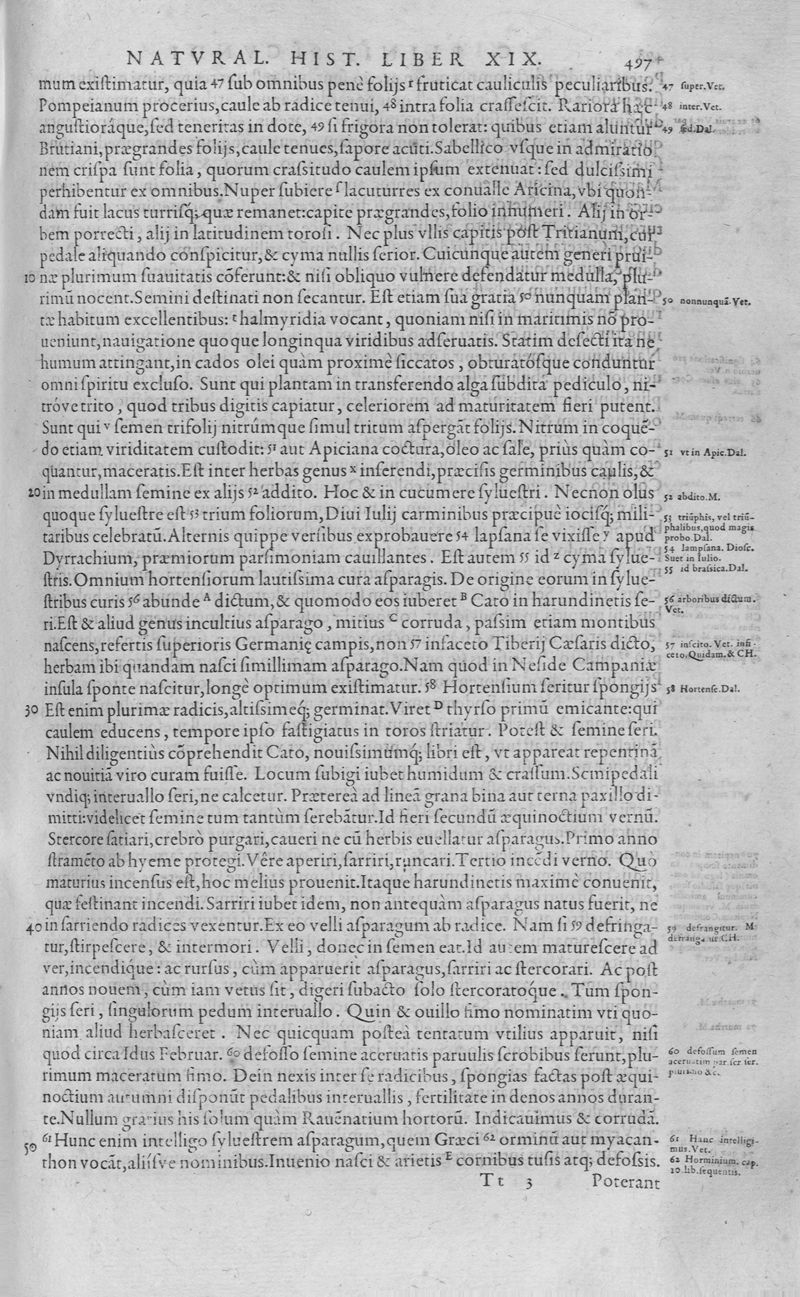 NATVRAL. HIST. LIBER XIX. 497
mum existimatur, quia 47 sub omnibus penè folijs r fruticat cauliculis peculiaribus. 47 super.Vet.
Pompeianum procerius, caule ab radice tenui, 48 intra folia crassescit. Rariora hæc 48 inter.Vet.
angustioráque, sed teneritas in dote, 49 si frigora non tolerat: quibus etiam aluntur 49 sed.Dal.
Brutiani, prægrandes folijs, caule tenues, sapore acuti. Sabellico vsque in admiratio
nem crispa sunt folia, quorum crassitudo caulem ipsum extenuat: sed dulcissimi
perhibentur ex omnibus. Nuper subiere s lacuturres ex conualle Aricina, vbi quon-
dam fuit lacus turrisq; quæ remanet: capite prægrandes, folio innumeri. Alij in or-
bem porrecti, alij in latitudinem torosi. Nec plus vllis capitis post Tritianum, cui
pedale aliquando conspicitur, & cyma nullis serior. Cuicunque autem generi prui-
10 næ plurimum suauitatis cōferunt: & nisi obliquo vulnere defendatur medulla, plu-
rimū nocent. Semini destinati non secantur. Est etiam sua gratia 50 nunquam plan- 50 nonnunquā.Vet.
tæ habitum excellentibus: t halmyridia vocant, quoniam nisi in maritimis nō pro-
ueniunt, nauigatione quoque longinqua viridibus adseruatis. Statim desecti ita ne
humum attingant, in cados olei quàm proximè siccatos, obturatósque conduntur
omni spiritu excluso. Sunt qui plantam in transferendo alga subdita pediculo, ni-
tróve trito, quod tribus digitis capiatur, celeriorem ad maturitatem fieri putent.
Sunt qui v semen trifolij nitrúmque simul tritum aspergāt folijs. Nitrum in coquē-
do etiam viriditatem custodit: 51 aut Apiciana coctura, oleo ac sale, priùs quàm co- 51 vt in Apic.Dal.
quantur, maceratis. Est inter herbas genus x inserendi, præcisis germinibus caulis, &
20 in medullam semine ex alijs 52 addito. Hoc & in cucumere syluestri. Necnon olus 52 abdito.M.
quoque syluestre est 53 trium foliorum, Diui Iulij carminibus præcipuè iocisq; mili- 53 triūphis, vel triū-
phalibus, quod magis
taribus celebratū. Alternis quippe versibus exprobauere 54 lapsana se vixisse y apud probo.Dal.
54 lampsana. Diosc.
Dyrrachium, præmiorum parsimoniam cauillantes. Est autem 55 id z cyma sylue- Suet in Iulio.
55 id brassica.Dal.
stris. Omnium hortensiorum lautissima cura asparagis. De origine eorum in sylue-
stribus curis 56 abunde A dictum, & quomodo eos iuberet B Cato in harundinetis se- 56 arboribus dictum.
Vet.
ri. Est & aliud genus incultius asparago, mitius C corruda, passim etiam montibus
nascens, refertis superioris Germanię campis, non 57 infaceto Tiberij Cæsaris dicto, 57 inscito. Vet. infi-
ceto, Quidam. & CH.
herbam ibi quandam nasci simillimam asparago. Nam quod in Neside Campaniæ
insula sponte nascitur, longè optimum existimatur. 58 Hortensium seritur spongijs 58 Hortense.Dal.
30 Est enim plurimæ radicis, altissimeq; germinat. Viret D thyrso primū emicante: qui
caulem educens, tempore ipso fastigiatus in toros striatur. Potest & semine seri.
Nihil diligentiùs cōprehendit Cato, nouissimúmq; libri est, vt appareat repentinā
ac nouitiā viro curam fuisse. Locum subigi iubet humidum & crassum. Semipedali
vndiq; interuallo seri, ne calcetur. Præterea ad lineā grana bina aut terna paxillo di-
mitti: videlicet semine tum tantùm serebātur. Id fieri secundū æquinoctium vernū.
Stercore satiari, crebrò purgari, caueri ne cū herbis euellatur asparagus. Primo anno
stramēto ab hyeme protegi. Vêre aperiri, sarriri, runcari. Tertio incēdi verno. Quo
maturius incensus est, hoc melius prouenit. Itaque harundinetis maximè conuenit,
quæ festinant incendi. Sarriri iubet idem, non antequàm asparagus natus fuerit, ne
40 in sarriendo radices vexentur. Ex eo velli asparagum ab radice. Nam si 59 defringa- 59 defrangitur. M
tur, stirpescere, & intermori. Velli, donec in semen eat. Id autem maturescere ad
ver, incendíque: ac rursus, cùm apparuerit asparagus, sarriri ac stercorari. Ac post
annos nouem, cùm iam vetus sit, digeri subacto solo stercoratóque. Tum spon-
gijs seri, singulorum pedum interuallo. Quin & ouillo fimo nominatim vti quo-
niam aliud herbasceret. Nec quicquam posteà tentatum vtilius apparuit, nisi
quod circa Idus Februar. 60 defosso semine aceruatis paruulis scrobibus serunt, plu- 60 defossum semen
rimum maceratum fimo. Dein nexis inter se radicibus, spongias factas post æqui-
noctium autumni disponūt pedalibus interuallis, fertilitate in denos annos duran-
te. Nullum gratius his solum quàm Rauēnatium hortorū. Indicauimus & corrudā.
50 61 Hunc enim intelligo syluestrem asparagum, quem Græci 62 orminū aut myacan- 61 Hanc intelligi-
mus.Vet.
thon vocāt, aliísve nominibus. Inuenio nasci & arietis E cornibus tusis atq; defossis. 62 Horminium. cap.
20.lib.sequentis.
Tt 3 Poterant